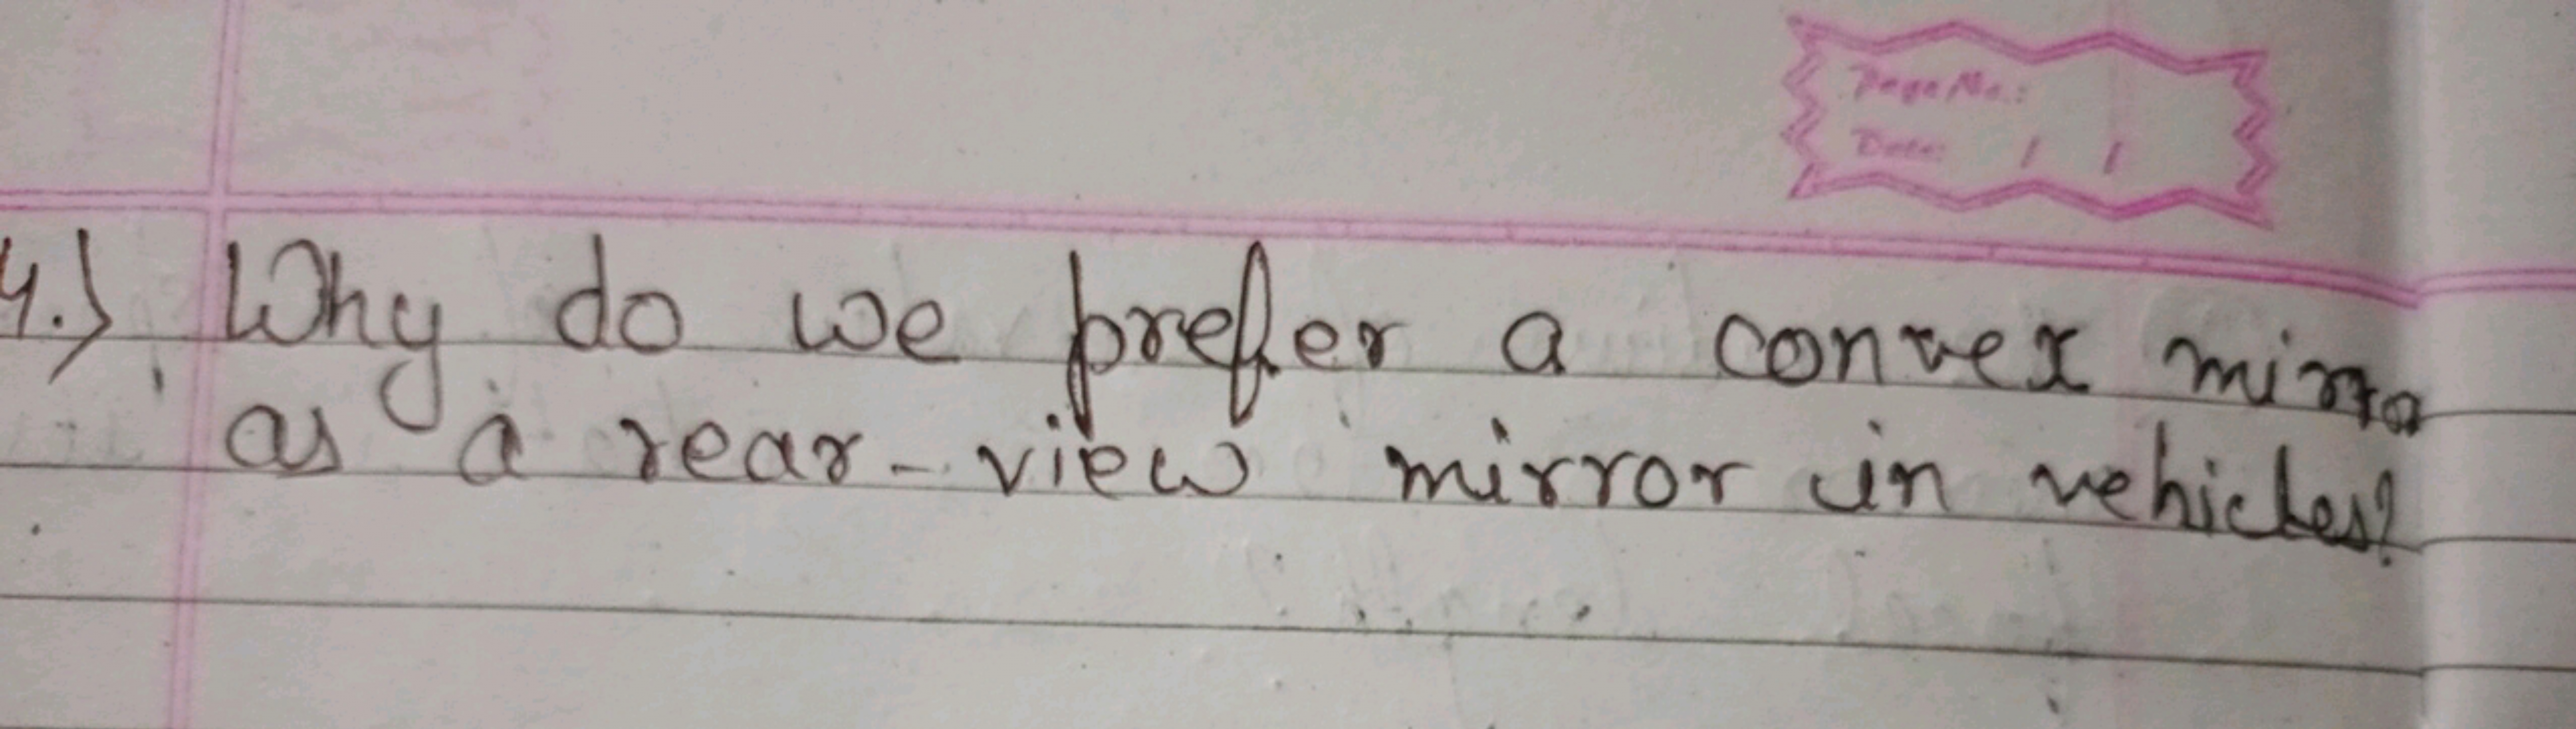 Page No.:
Date: / /
4.) Why do we prefer a convex mirro
as a rear-view mirror in vehicles?